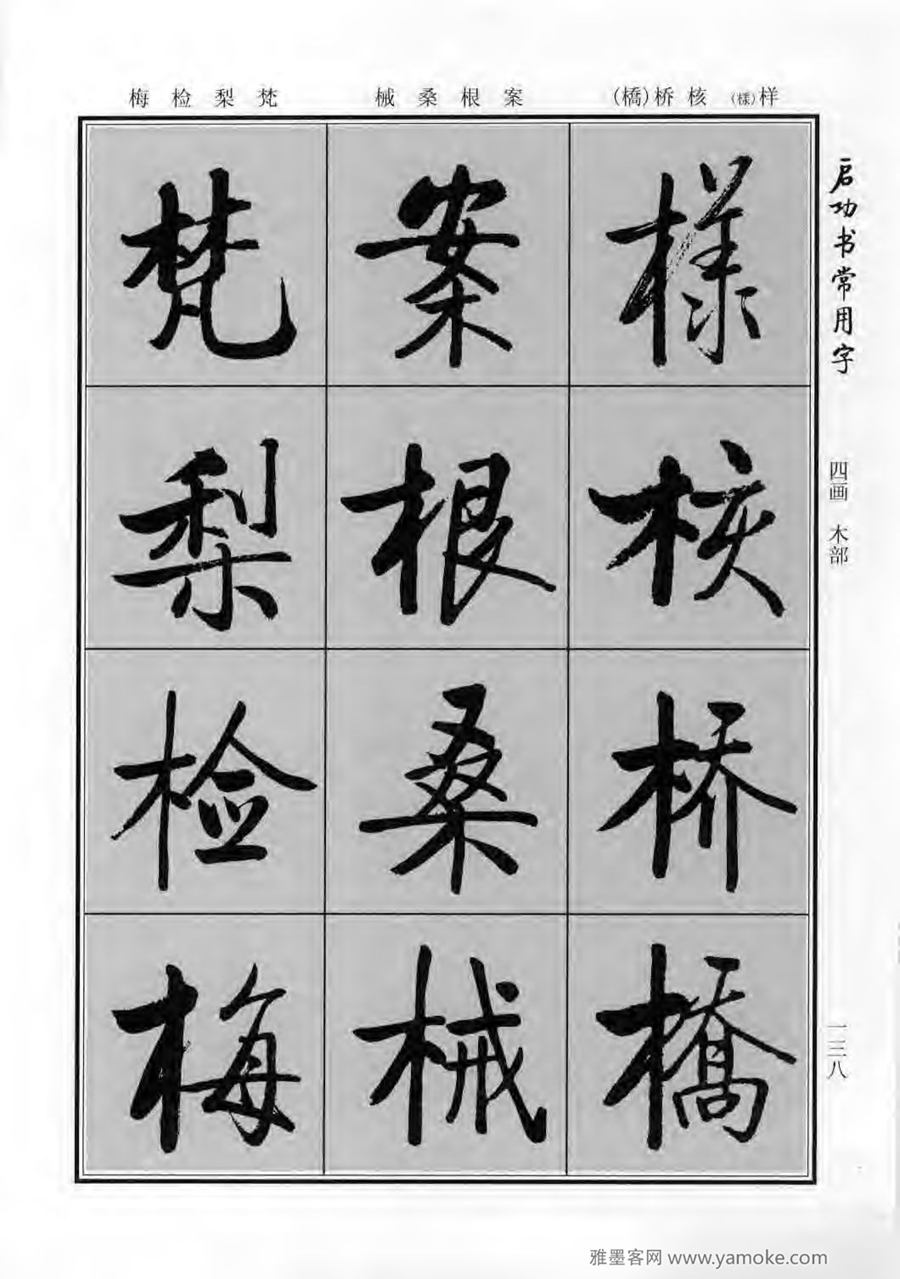 梅检梨梵 械桑根案 (橋)桥核 (樣)样
启功书常用字
四画 木部
一三八
樣核桥橋
案根桑械
梵梨检梅
雅墨客网 www.yamoke.com